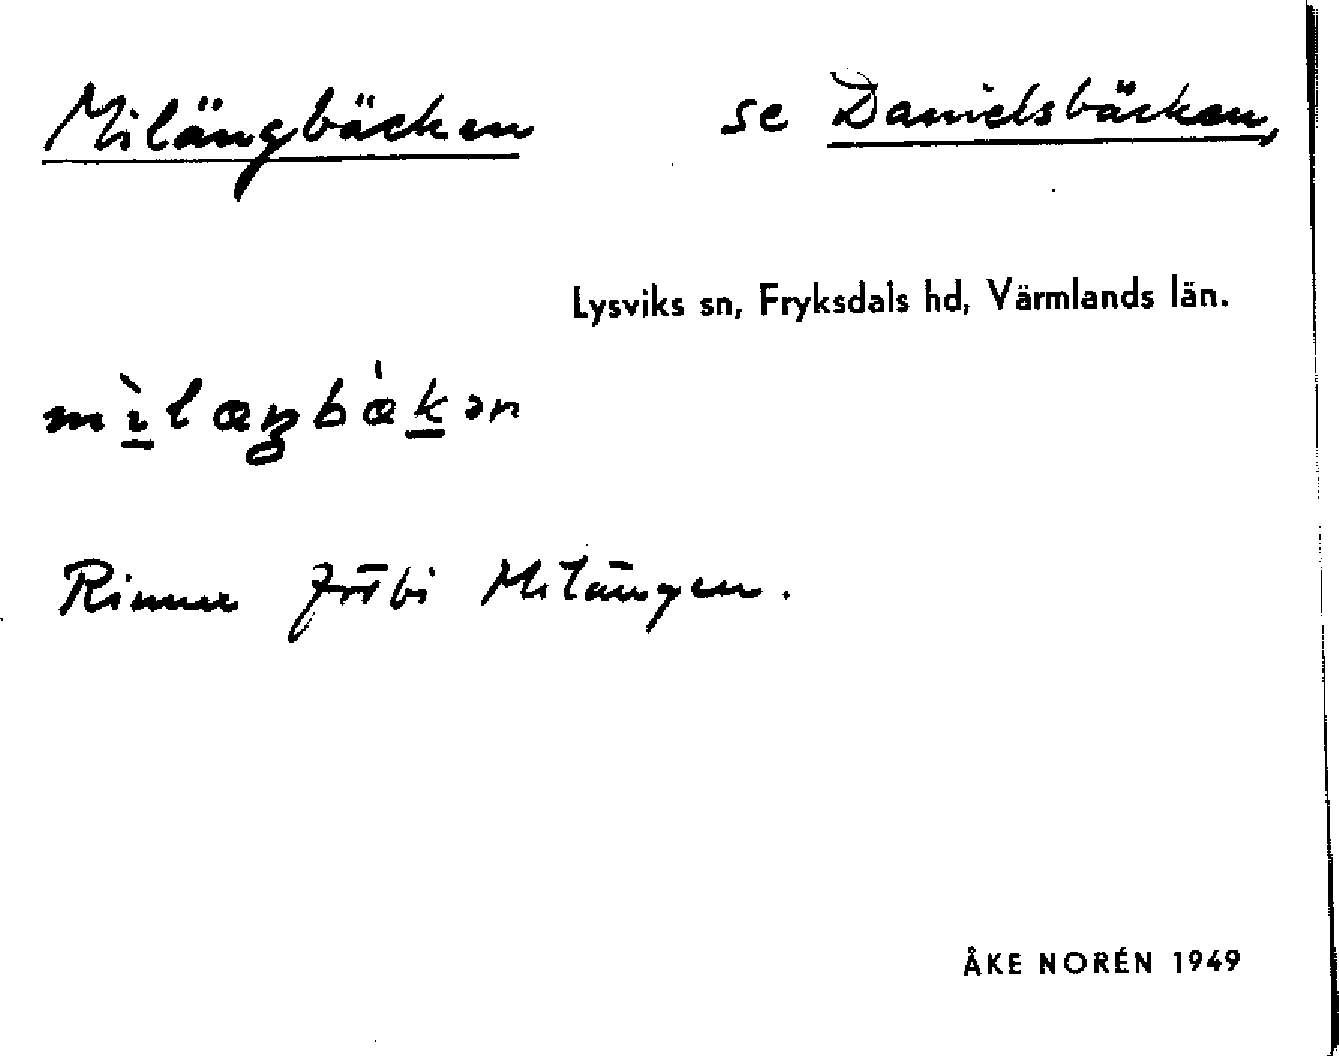 Milängbäcken se Danielsbäcken,
Lysviks sn, Fryksdals hd, Värmlands län.
mìlæŋbækən
Rinner förbi Milängen.
ÅKE NORÉN 1949